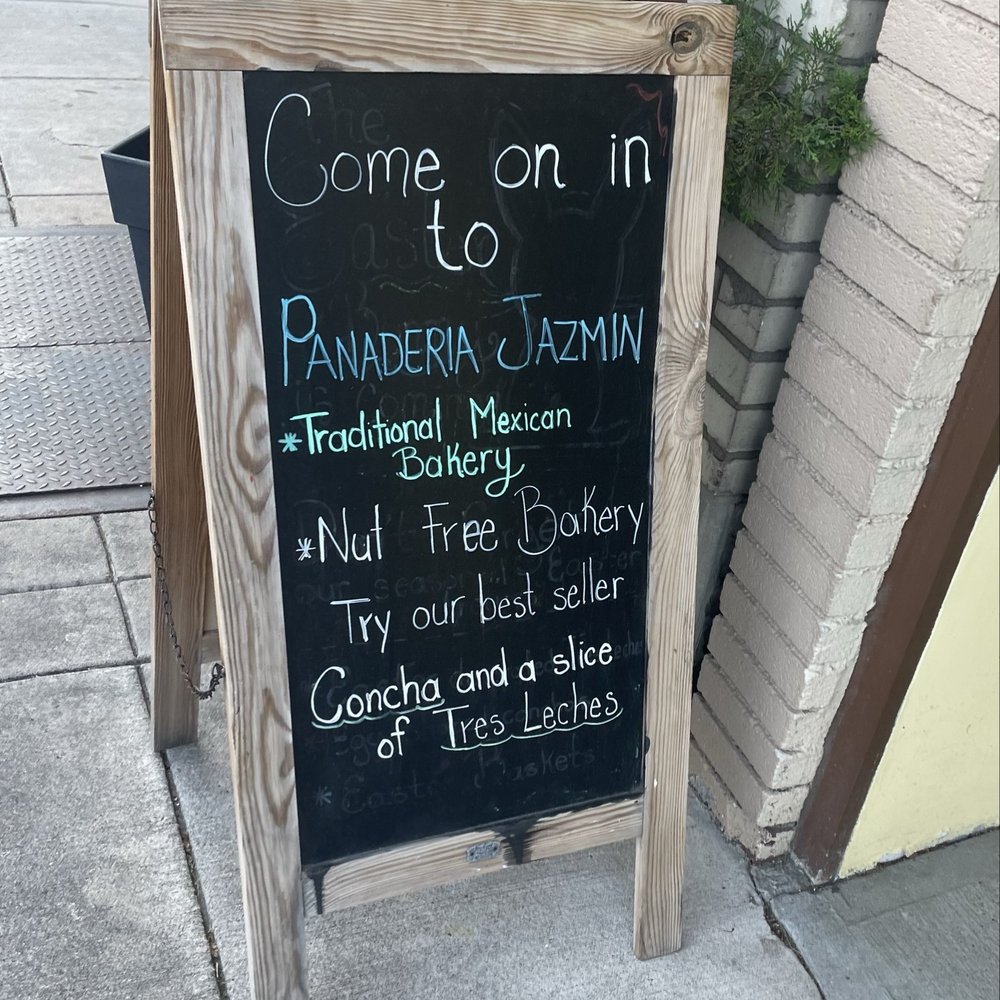 Come on in
to
PANADERIA JAZMIN
*Traditional Mexican
Bakery
*Nut Free Bakery
Try our best seller
Concha and a slice
of Tres Leches